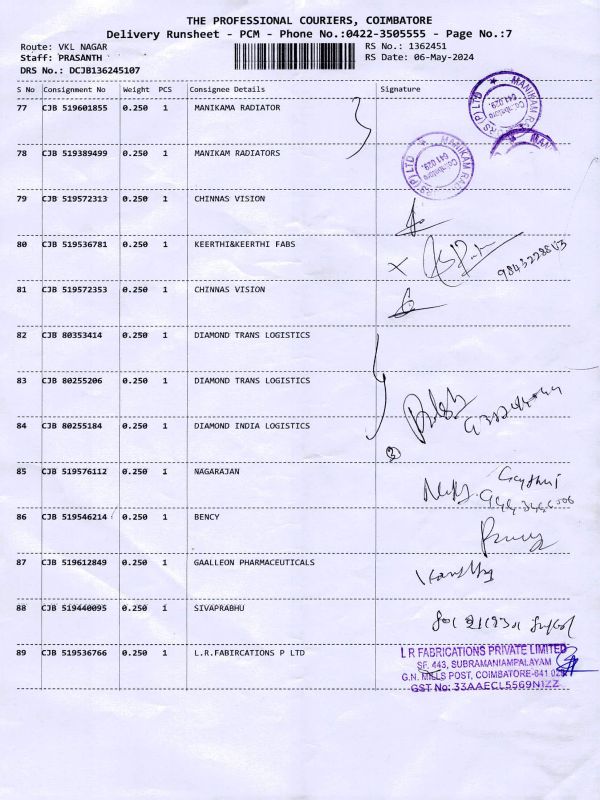 THE PROFESSIONAL COURIERS, COIMBATORE
Delivery Runsheet - PCM - Phone No.:0422-3505555 - Page No.:7
Route: VKL NAGAR
RS No.: 1362451
Staff: PRASANTH
RS Date: 06-May-2024
DRS No.: DCJB136245107
S No Consignment No Weight PCS Consignee Details Signature
77 CJB 519601855 0.250 1 MANIKAMA RADIATOR
78 CJB 519389499 0.250 1 MANIKAM RADIATORS
79 CJB 519572313 0.250 1 CHINNAS VISION
80 CJB 519536781 0.250 1 KEERTHI&KEERTHI FABS
81 CJB 519572353 0.250 1 CHINNAS VISION
82 CJB 80353414 0.250 1 DIAMOND TRANS LOGISTICS
83 CJB 80255206 0.250 1 DIAMOND TRANS LOGISTICS
84 CJB 80255184 0.250 1 DIAMOND INDIA LOGISTICS
85 CJB 519576112 0.250 1 NAGARAJAN
86 CJB 519546214 0.250 1 BENCY
87 CJB 519612849 0.250 1 GAALLEON PHARMACEUTICALS
88 CJB 519440095 0.250 1 SIVAPRABHU
89 CJB 519536766 0.250 1 L.R.FABIRCATIONS P LTD
L R FABRICATIONS PRIVATE LIMITED
SF. 443, SUBRAMANIAMPALAYAM
G.N. MILLS POST, COIMBATORE-641 029
GST No: 33AAECL5569N1ZZ